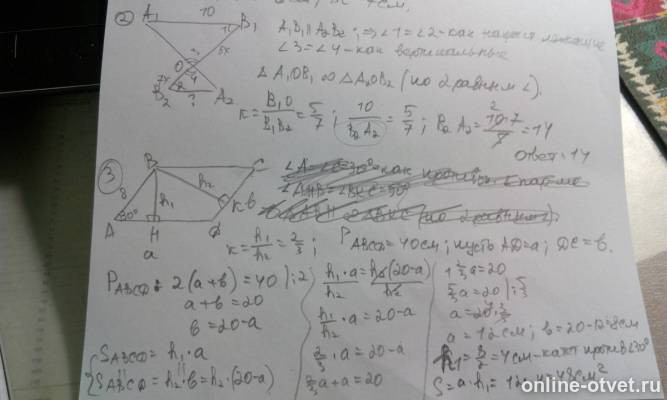 см.
② A₁ 10 B₁
1 5x
O 3
2x 4
B₂ 2 ? A₂
A₁B₁ ∥ A₂B₂; ⇒ ∠1=∠2-как накрест лежащие
∠3=∠4-как вертикальные
△A₁OB₁ ∞ △A₂OB₂ (по 2 равным ∠).
к = B₁O/B₁B₂ = 5/7; 10/B₂A₂ = 5/7; B₂A₂ = 10·7/5 = 14
ответ: 14
③ B C
8 h₁ h₂ K в
A 30° H
a
к = h₁/h₂ = 2/3; PABCD = 40см; пусть AD=a; DC=в.
PABCD: 2(a+в)=40 |:2
a+в=20
в=20-a
SABCD = h₁·a
SABCD = h₂·в = h₂·(20-a)
h₁·a/h₂ = h₂(20-a)/h₂
h₁/h₂·a = 20-a
2/3·a = 20-a
2/3a+a = 20
1 2/3a=20
5/3a=20 |: 5/3
a=20·3/5
a=12см; в=20-12=8см
h₁=8/2=4см-кат против ∠30°
S=a·h₁=12·4=48см²
online-otvet.ru